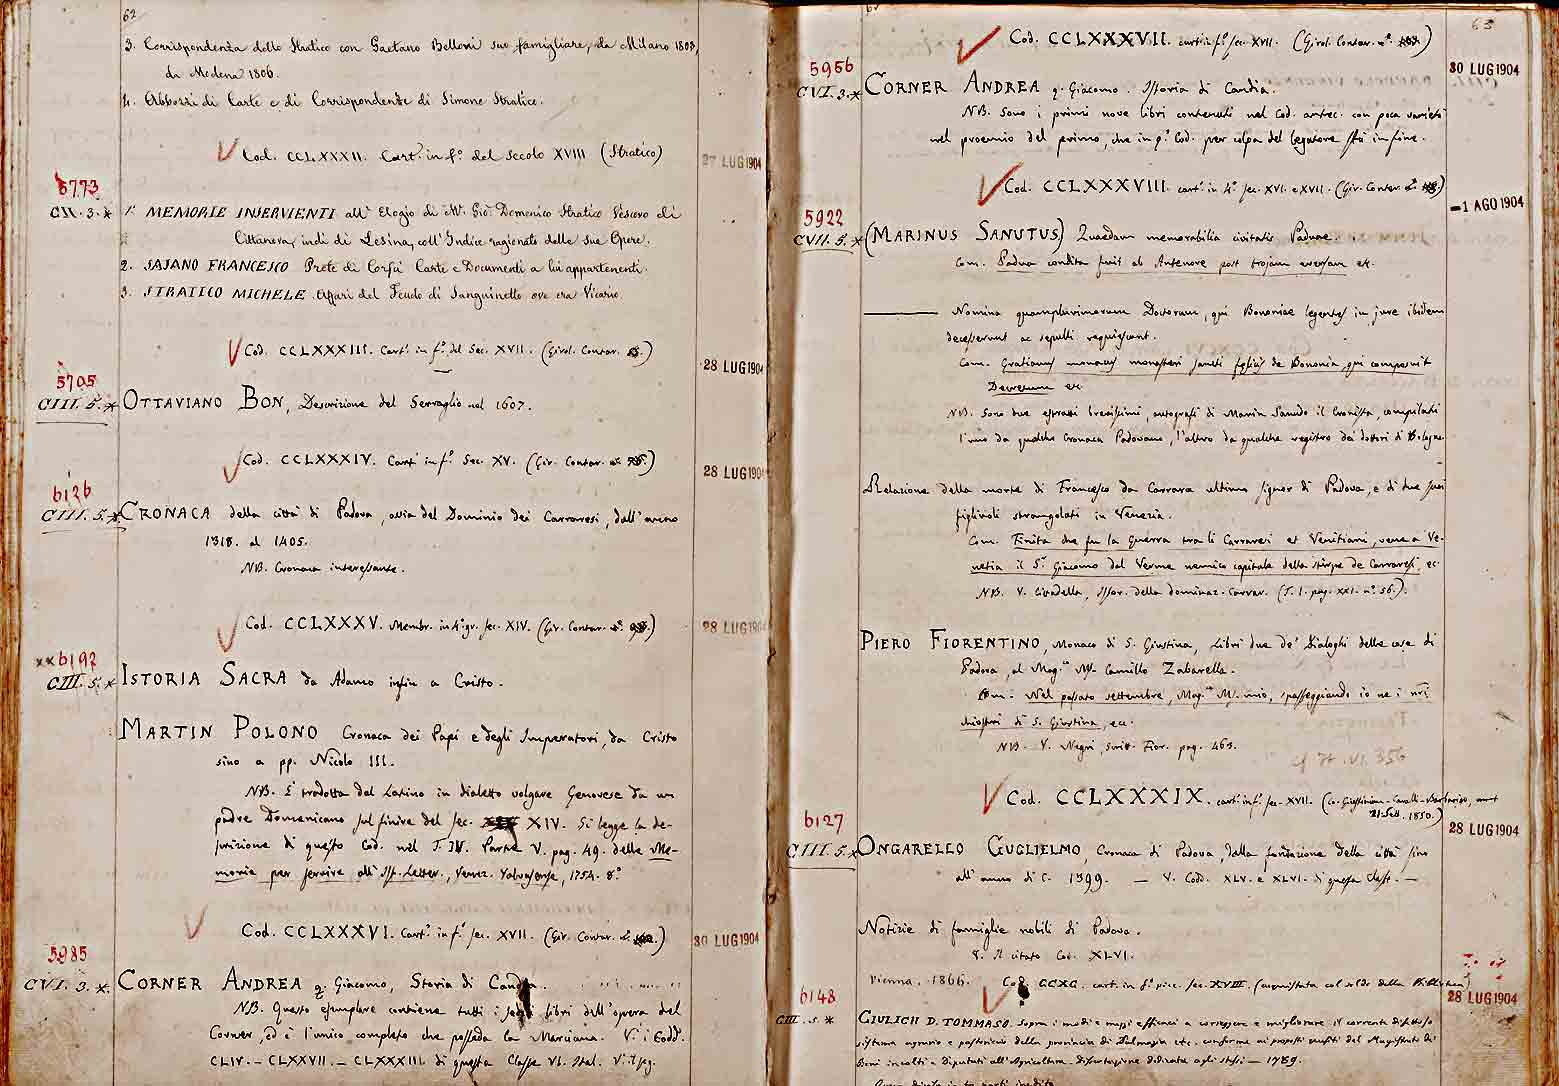 62
3. Corrispondenza dello Stratico con Gaetano Belloni suo famigliare, da Milano 1803,
da Modena 1806.
4. Abbozzi di Carte e di Corrispondenze di Simone Stratico.
Cod. CCLXXXII. Cart. in fº. del Secolo XVIII (Stratico)
27 LUG 1904
5773
CII. 3. *
1. MEMORIE INSERVIENTI all' Elogio di Mr. Gio: Domenico Stratico Vescovo di
Cittanova, indi di Lesina, coll' Indice ragionato delle sue Opere.
2. SAJANO FRANCESCO Prete di Corfù Carte e Documenti a lui appartenenti.
3. STRATICO MICHELE Affari del Feudo di Sanguinetto ove era Vicario.
Cod. CCLXXXIII. Cart. in fº. del Sec. XVII. (Girol. Contar.)
28 LUG 1904
5705
CIII. 5. *
OTTAVIANO BON, Descrizione del Serraglio nel 1607.
Cod. CCLXXXIV. Cart. in fº. Sec. XV. (Gir. Contar. nº.)
28 LUG 1904
6126
CIII. 5. *
CRONACA della città di Padova, ossia del Dominio dei Carraresi, dall' anno
1318. al 1405.
NB. Cronaca interessante.
Cod. CCLXXXV. Membr. in 4º gr. sec. XIV. (Gir. Contar. nº.)
28 LUG 1904
xx 6192
CIII. 5. *
ISTORIA SACRA da Adamo infin a Cristo.
MARTIN POLONO Cronaca dei Papi e degli Imperatori, da Cristo
sino a pp. Nicolo III.
NB. È tradotta dal Latino in dialetto volgare Genovese da un
padre Domenicano sul finire del sec. XIV. Si legge la de-
scrizione di questo Cod. nel T. IV. Parte V. pag. 49. delle Me-
morie per servire all' Ist. Letter., Venez. Valvasense, 1754. 8º.
Cod. CCLXXXVI. Cart. in fº. sec. XVII. (Gir. Contar. nº.)
30 LUG 1904
5985
CVI. 3. *
CORNER ANDREA q. Giacomo, Storia di Candia.
NB. Questo esemplare contiene tutti i libri dell' opera del
Corner, ed è l'unico completo che posseda la Marciana. V. i Codd.
CLIV. – CLXXVII. – CLXXXIII. di questa Classe VI. Ital.
63
Cod. CCLXXXVII. cart. in fº. sec. XVII. (Girol. Contar. nº.)
30 LUG 1904
5956
CVI. 3. *
CORNER ANDREA q. Giacomo. Istoria di Candia.
NB. Sono i primi nove libri contenuti nel Cod. antec. con poca varietà
nel proemio del primo, che in qº. Cod. per colpa del legatore sta in fine.
Cod. CCLXXXVIII. cart. in 4º. sec. XVI. e XVII. (Gir. Contar. nº.)
– 1 AGO 1904
5922
CVII. 5. *
(MARINUS SANUTUS) Quaedam memorabilia civitatis Paduae.
Com. Padua condita fuit ab Antenore post trojam eversam ec.
Nomina quamplurimorum Doctorum, qui Bononiae legentes in jure ibidem
decesserunt ac sepulti requiescunt.
Com. Gratianus monacus monasteri sancti felicis de Bononia, qui composuit
Decretum ec.
NB. Sono due estratti brevissimi, autografi di Marin Sanudo il Cronista, compilati
l'uno da qualche Cronaca Padovana, l'altro da qualche registro dei dottori di Bologna
Relazione della morte di Francesco da Carrara ultimo signor di Padova, e di due suoi
figliuoli strangolati in Venezia.
Com. Finita che fu la guerra tra li Carraresi et Venitiani, vene a Ve-
netia il Sr. Giacomo dal Verme nemico capitale della stirpe de Carraresi, ec.
NB. V. Cittadella, Istor. della dominaz. Carrar. (T. I. pag. XXI. nº. 56.).
PIERO FIORENTINO, Monaco di S. Giustina, Libri due de' Dialoghi delle cose di
Padova, al Mag.co M. Camillo Zabarella.
Com. Nel passato settembre, Mag.co M. mio, spasseggiando io ne i nri
chiostri di S. Giustina, ec.
NB. V. Negri, scritt. Fior. pag. 463.
cf It. VI. 356
Cod. CCLXXXIX. cart. in fº. sec. XVII. (Co. Giustinian-Cavalli-Barbarigo,
21. Sett. 1850.)
28 LUG 1904
6127
CIII. 5. *
ONGARELLO GUGLIELMO, Cronaca di Padova, dalla fondazione della città sino
all' anno di C. 1399. — V. Codd. XLV. e XLVI. di questa Class. —
Notizie di famiglie nobili di Padova.
V. Il citato Cod. XLVI.
Vienna. 1866. Cod. CCXC. cart. in fº. picc. sec. XVIII. (acquistata col soldo della Biblioteca)
28 LUG 1904
6148
CIII. 5. *
GIULICH D. TOMMASO. Sopra i modi e mezzi efficaci a correggere e migliorare il corrente difettoso
sistema agrario e pastoricio della provincia di Dalmazia etc. conforme ai proposti quesiti del Magistrato dei
Beni inculti e deputati all' Agricoltura. Dissertazione dedicata agli stessi — 1789.